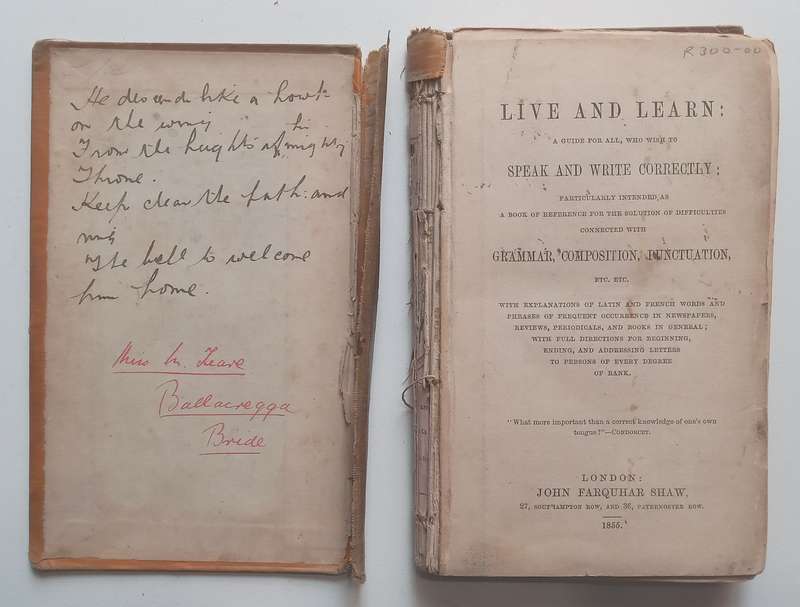 He descends like a howk
on the wing
his
From the heights of mighty
Throne.
Keep clear the path: and
ring
ye bell to welcome
him home.
Miss M. Teare
Ballacregga
Bride
R300-00
LIVE AND LEARN:
A GUIDE FOR ALL, WHO WISH TO
SPEAK AND WRITE CORRECTLY;
PARTICULARLY INTENDED AS
A BOOK OF REFERENCE FOR THE SOLUTION OF DIFFICULTIES
CONNECTED WITH
GRAMMAR, COMPOSITION, PUNCTUATION,
ETC. ETC.
WITH EXPLANATIONS OF LATIN AND FRENCH WORDS AND
PHRASES OF FREQUENT OCCURRENCE IN NEWSPAPERS,
REVIEWS, PERIODICALS, AND BOOKS IN GENERAL;
WITH FULL DIRECTIONS FOR BEGINNING,
ENDING, AND ADDRESSING LETTERS
TO PERSONS OF EVERY DEGREE
OF RANK.
"What more important than a correct knowledge of one's own
tongue?"—CONDORCET.
LONDON:
JOHN FARQUHAR SHAW,
27, SOUTHAMPTON ROW, AND 36, PATERNOSTER ROW.
1855.